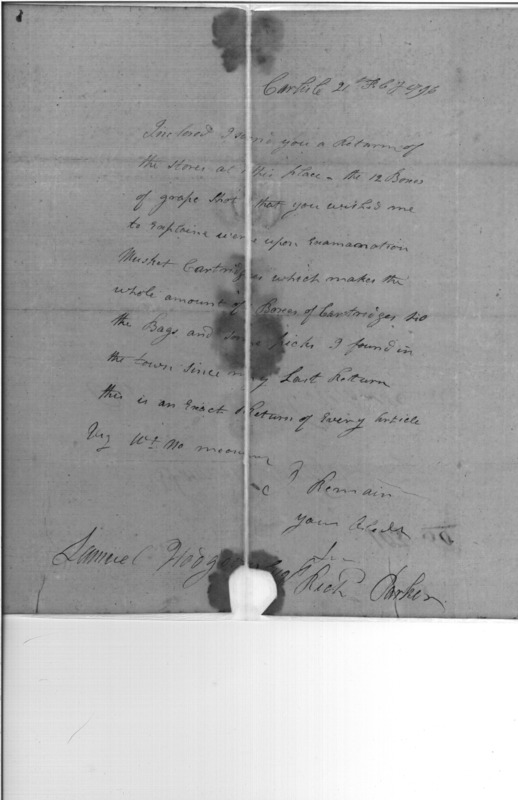 Carlisle 21st Feby 1796
Inclosed I send you a Return of
the stores at this place - the 12 Boxes
of grape Shot that you wished me
to Explain were upon Examanation
Musket Cartridges which makes the
whole amount of Boxes of Cartridges
the Bags and some picks I found in
the town since my Last Return
this is an Exact Return of Every Article
Viz Wt. No measure
&c I Remain
your Obedt
Sr
Samuel Hodgdon Richd Parker